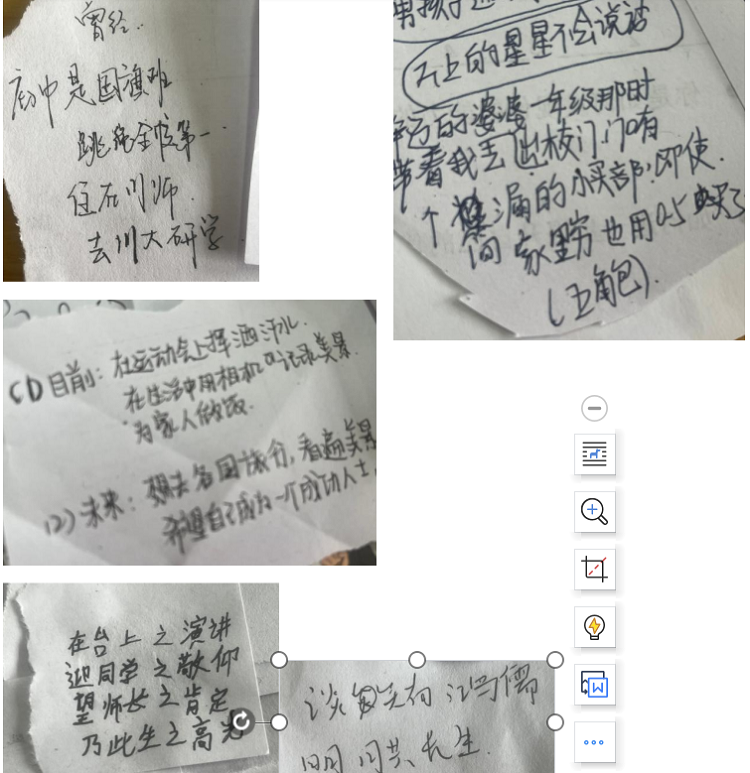 曾经.
初中是国旗班
跳绳全校第一
住在川师.
去川大研学
天上的星星不会说话
的婆婆一年级那时
带着我去出校门,门口有
个 漏的小卖部,即使.
家里穷也用0.5买了
(五角包).
(1)目前:在运动会上挥洒汗水.
在生活中用相机记录美景.
为家人做饭.
(2)未来:想去各国旅行,看遍美景
希望自己成为一个成功人士.
在台上之演讲
迎同学之敬仰
望师长之肯定
乃此生之高光
谈 鸿儒
共长生.
W